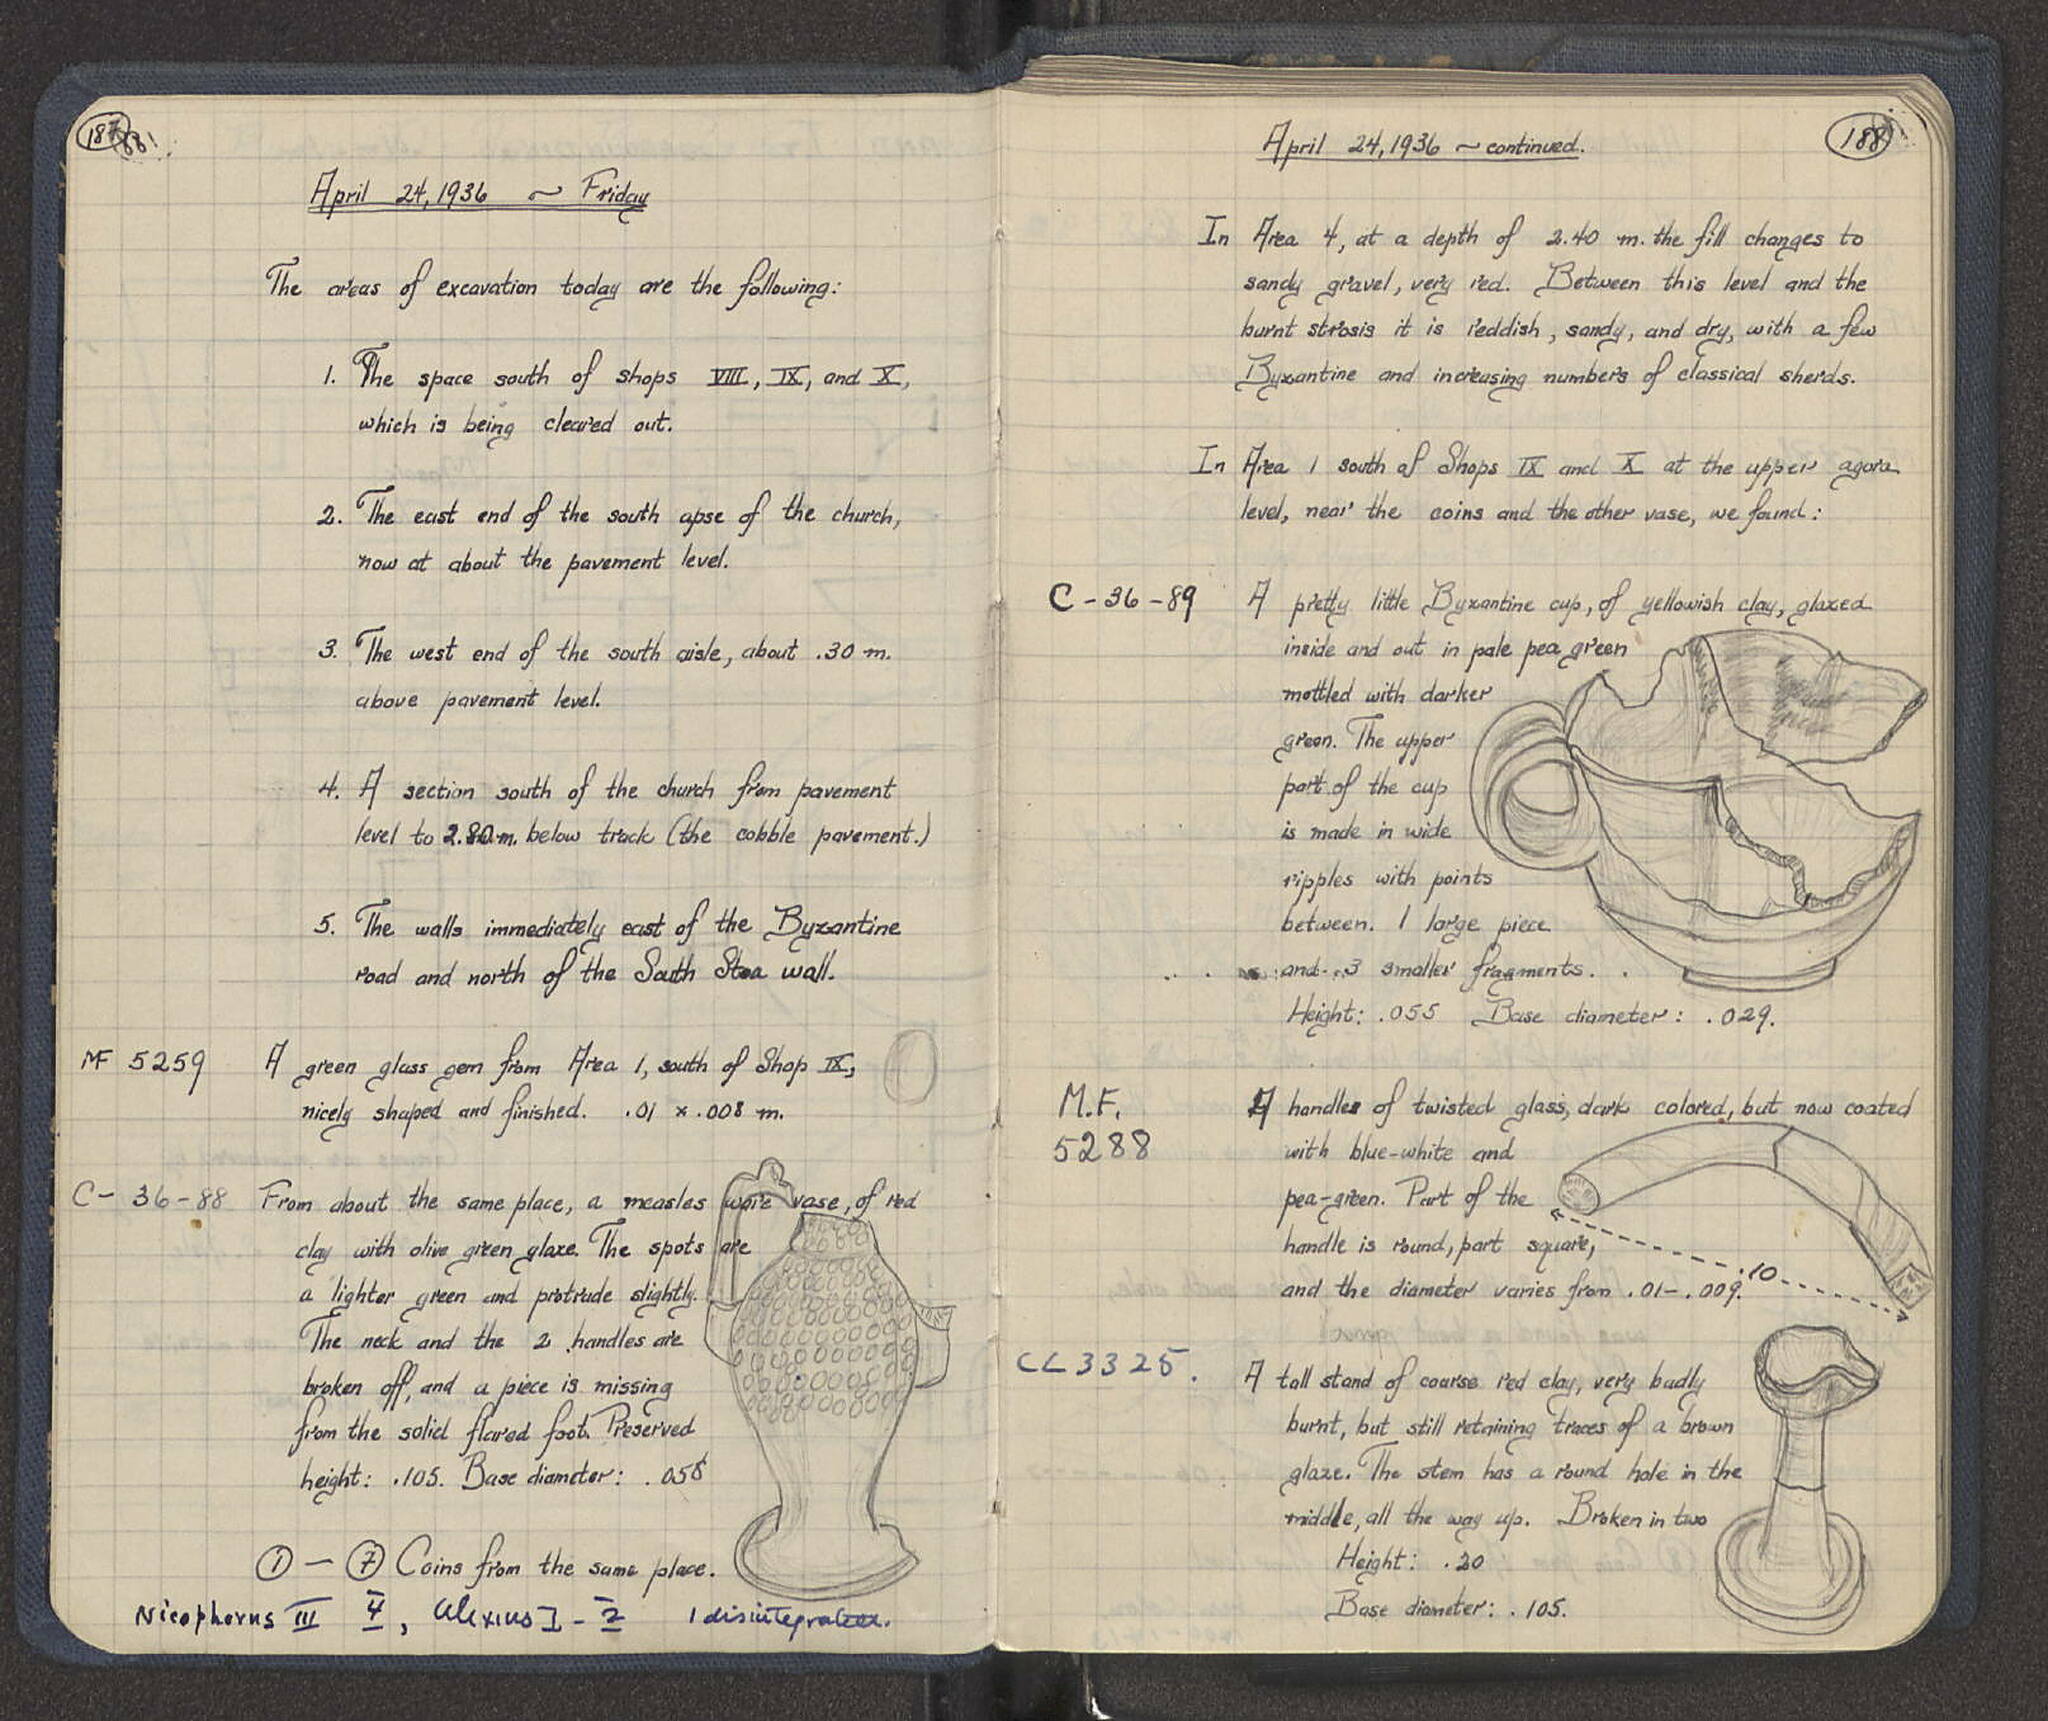 187
April 24, 1936 ~ Friday
The areas of excavation today are the following:
1. The space south of shops VIII, IX, and X,
which is being cleared out.
2. The east end of the south apse of the church,
now at about the pavement level.
3. The west end of the south aisle, about .30 m.
above pavement level.
4. A section south of the church from pavement
level to 2.80 m. below track (the cobble pavement.)
5. The walls immediately east of the Byzantine
road and north of the South Stoa wall.
MF 5259 A green glass gem from Area 1, south of Shop IX,
nicely shaped and finished. .01 x .008 m.
C-36-88 From about the same place, a measles ware vase, of red
clay with olive green glaze. The spots are
a lighter green and protrude slightly.
The neck and the 2 handles are
broken off, and a piece is missing
from the solid flared foot. Preserved
height: .105. Base diameter: .058
① — ⑦ Coins from the same place.
Nicephorus III 4, Alexius I - 2 1 disintegrated.
188
April 24, 1936 ~ continued.
In Area 4, at a depth of 2.40 m. the fill changes to
sandy gravel, very red. Between this level and the
burnt strosis it is reddish, sandy, and dry, with a few
Byzantine and increasing numbers of classical sherds.
In Area 1 south of Shops IX and X at the upper agora
level, near the coins and the other vase, we found:
C-36-89 A pretty little Byzantine cup, of yellowish clay, glazed
inside and out in pale pea green
mottled with darker
green. The upper
part of the cup
is made in wide
ripples with points
between. 1 large piece
and 3 smaller fragments.
Height: .055 Base diameter: .029.
M.F. A handle of twisted glass, dark colored, but now coated
5288 with blue-white and
pea-green. Part of the
handle is round, part square,
.10
and the diameter varies from .01-.009.
CL 3325. A tall stand of coarse red clay, very badly
burnt, but still retaining traces of a brown
glaze. The stem has a round hole in the
middle, all the way up. Broken in two
Height: .20
Base diameter: .105.